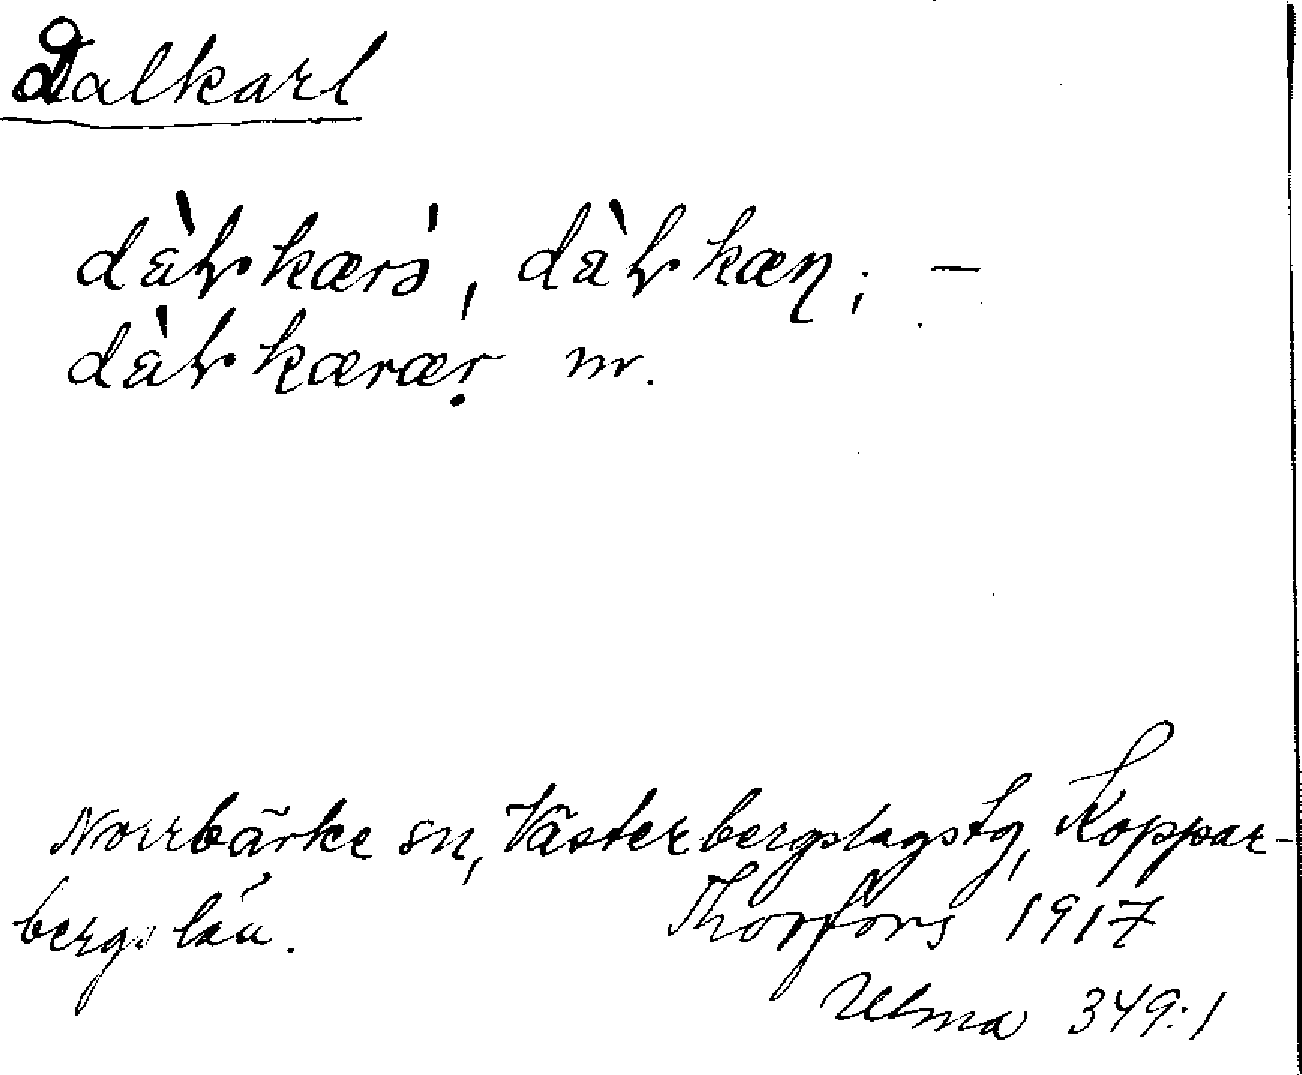 Dalkarl
dàɫkærs̀, dàɫkæɳ; —
dàɫkæræṛ m.
Norrbärke sn, Västerbergslagstg, Koppar-
bergs län. Thorfors 1917
Ulma 349:1